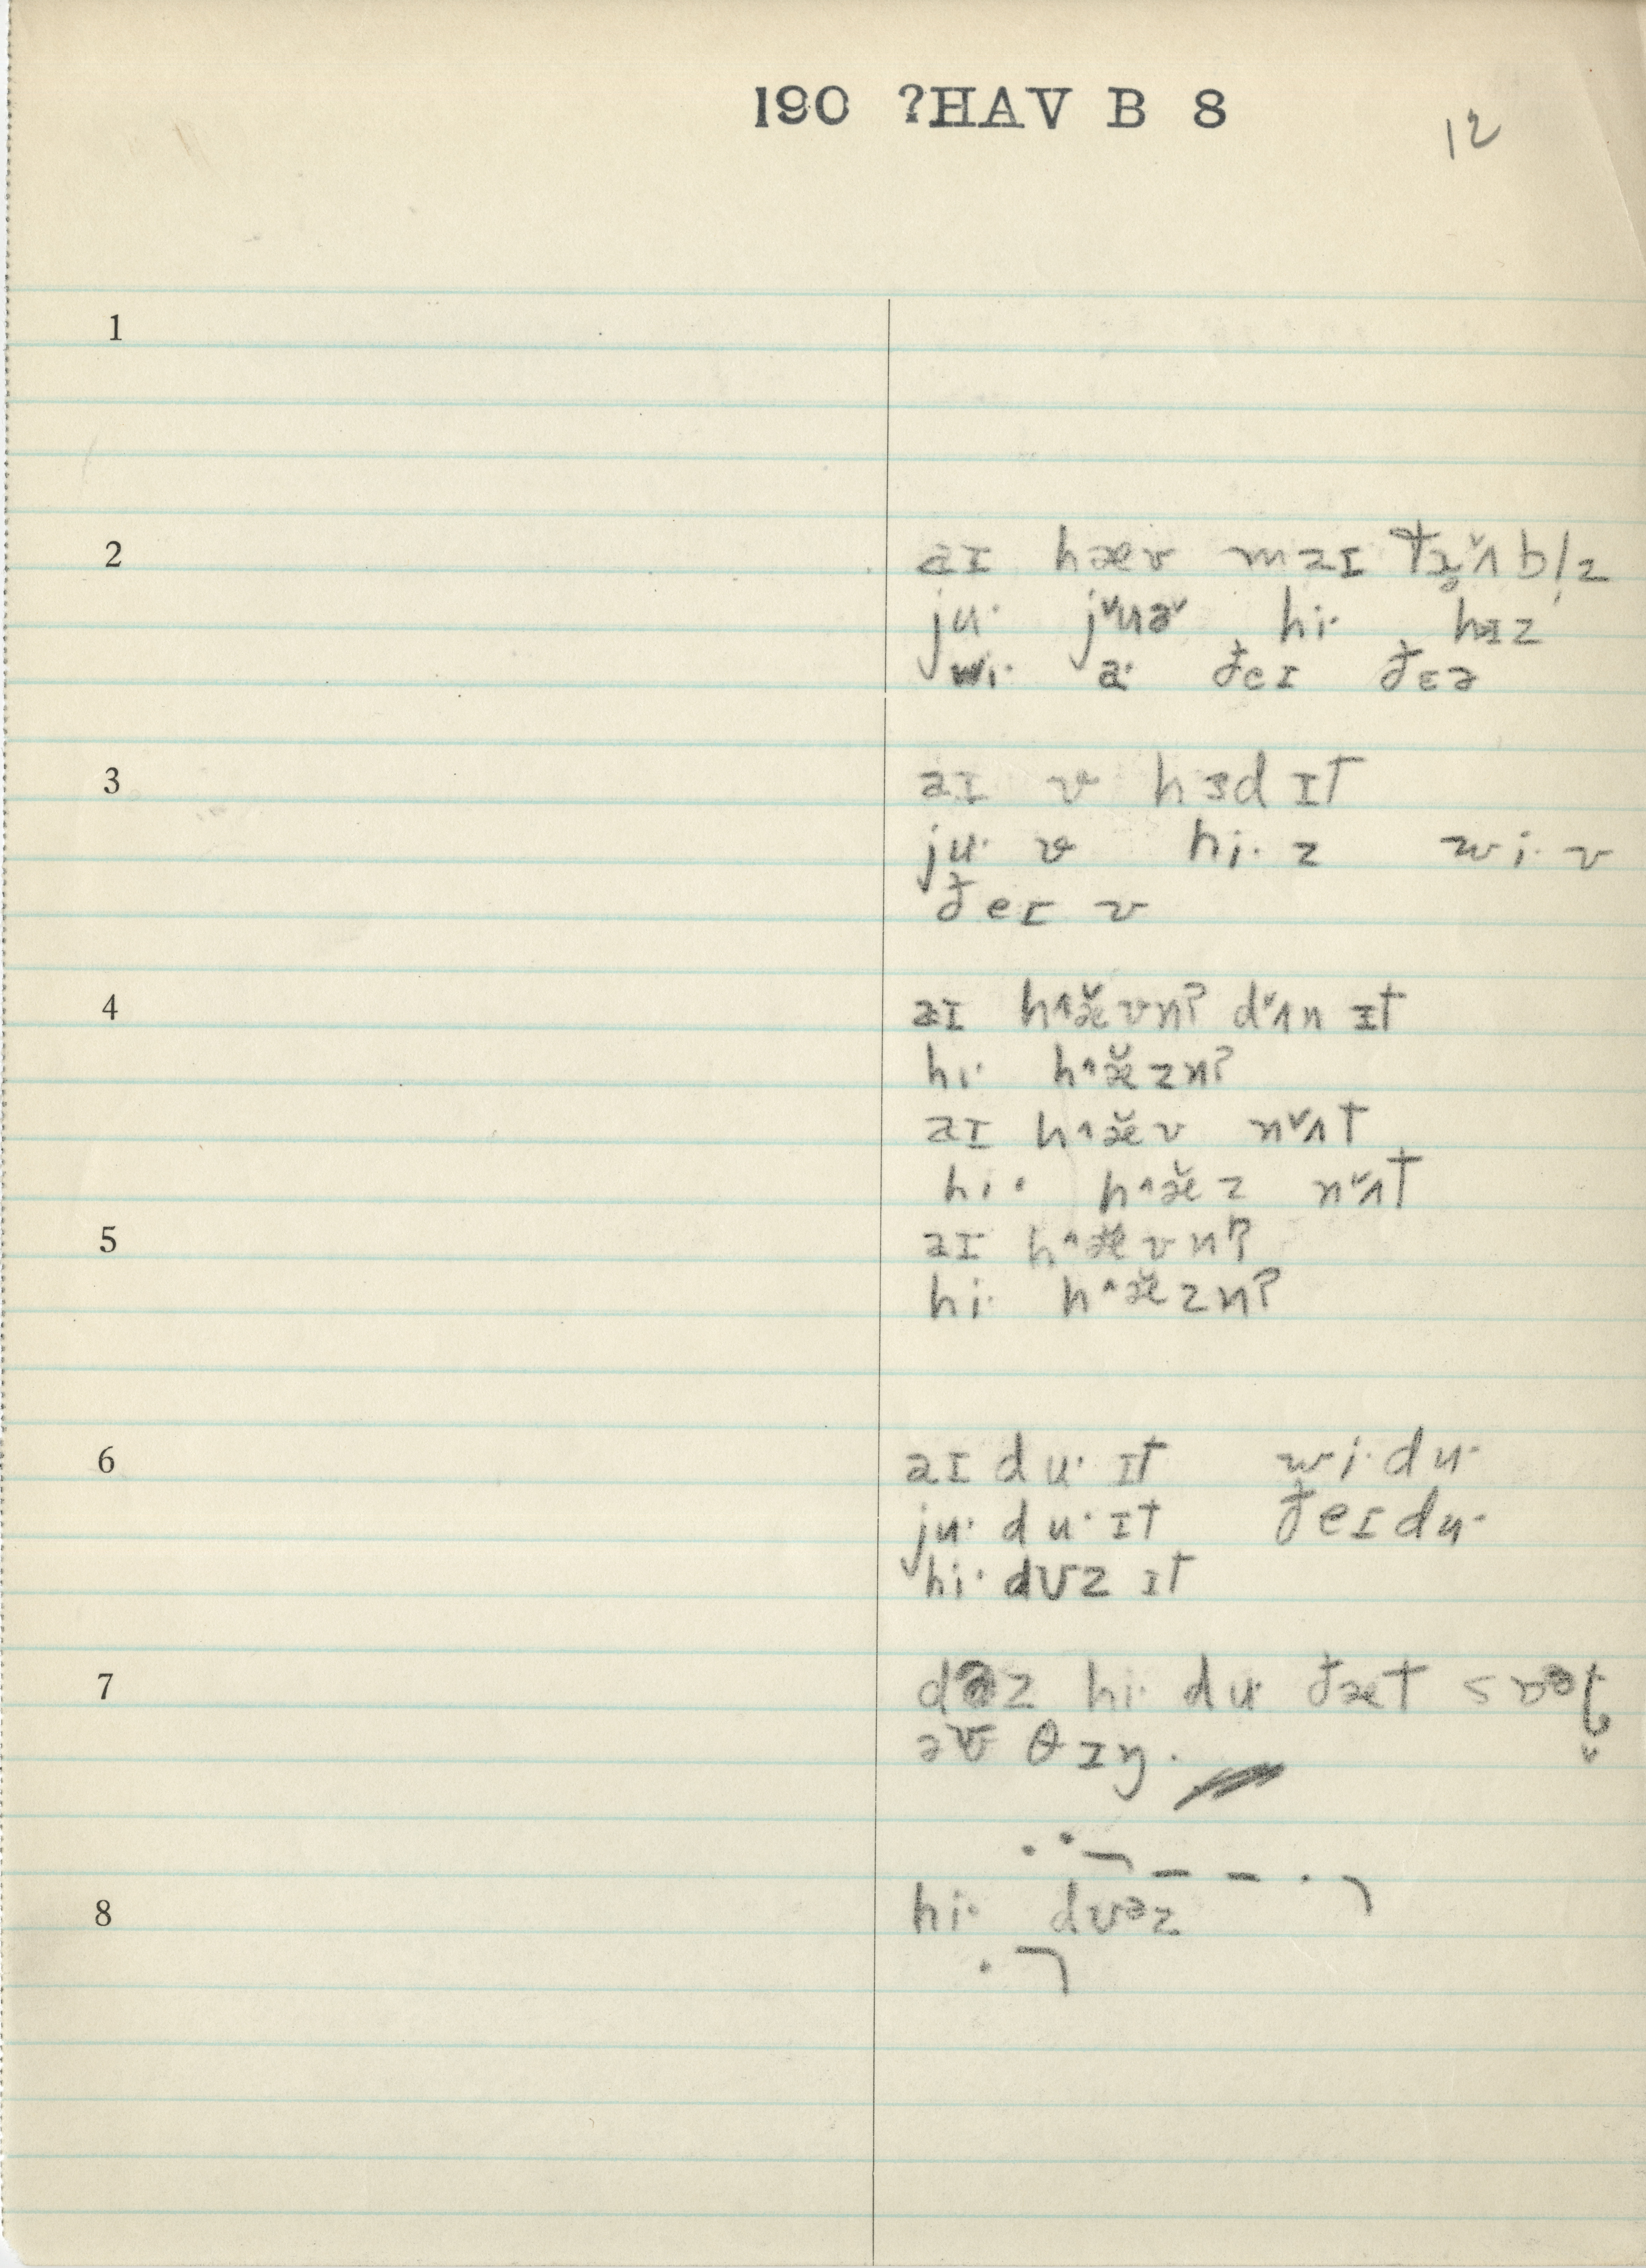 190 ?HAV B 8
12
1
2 aɪ hæv maɪ tɹ̥ʌ̌blz
ju· jˇuəˇ hi· hɪz
wi· a· ðeɪ ðɛə
3 aɪ v hɜd ɪt
ju· v hi· z wi· v
ðeɪ v
4 aɪ h^æ̌vnʔ dˇʌn ɪt
hi· h^æ̌znʔ
aɪ h^æ̌v nˇʌt
hi· h^æ̌z nˇʌt
5 aɪ h^æ̌vnʔ
hi· h^æ̌znʔ
6 aɪ du· ɪt wi· du·
ju· du· ɪt ðeɪ du·
hi· dʊz ɪt
7 dəz hi· du· ðæt
əv θɪŋ.
8 hi· dʊəz